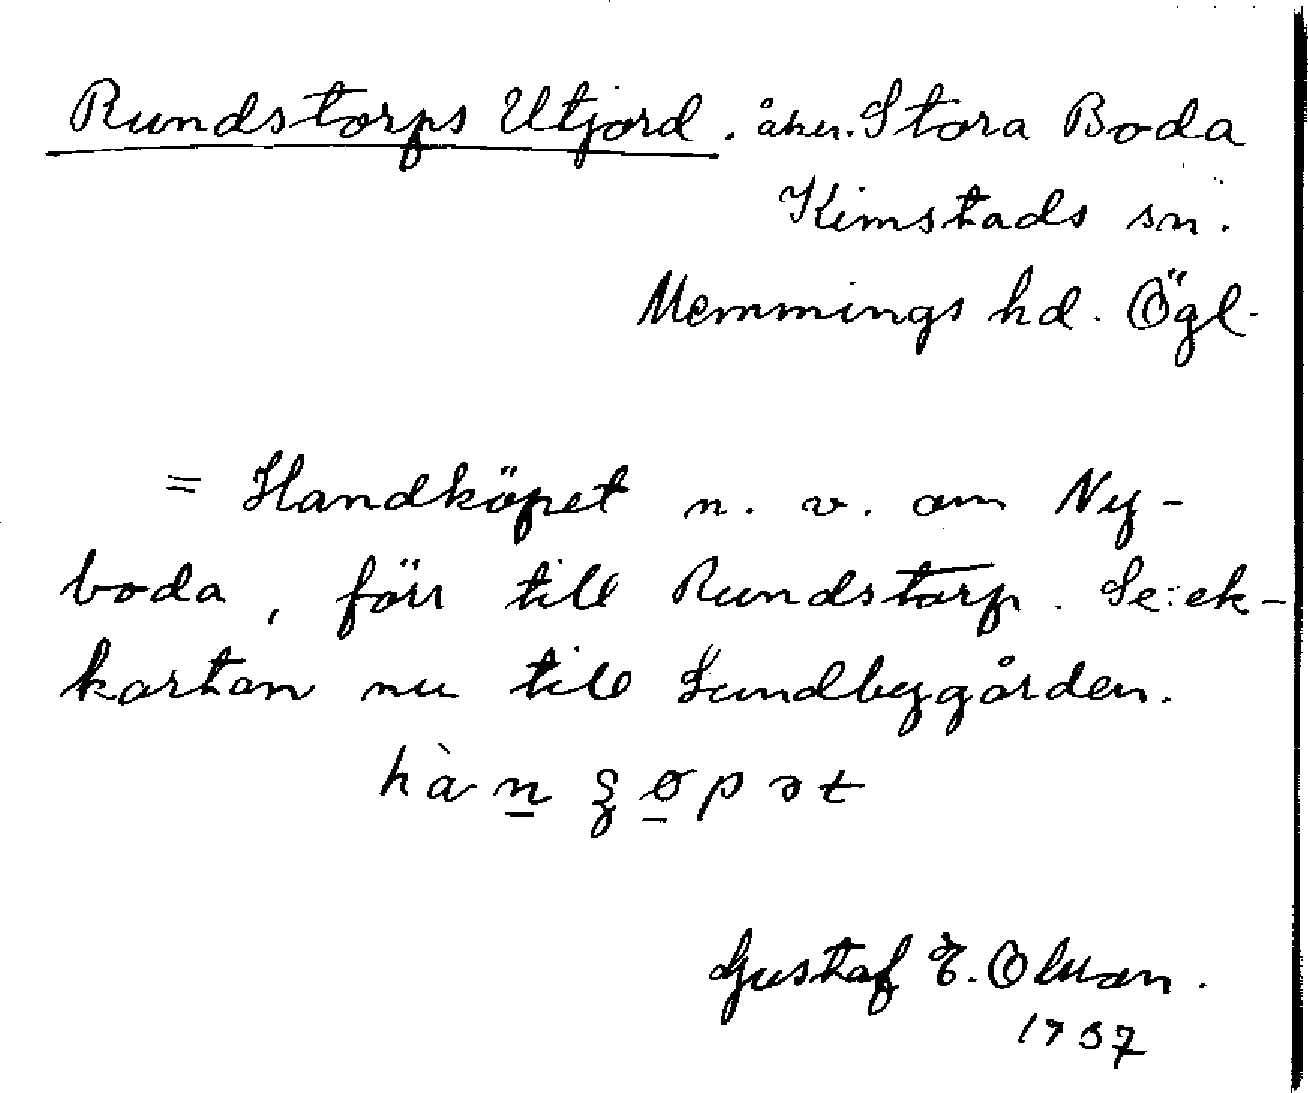 Rundstorps Utjord. åker. Stora Boda
Kimstads sn.
Memmings hd. Ögl.
= Handköpet n. v. om Ny-
boda, förr till Rundstorp. Se: ek-
kartan nu till Lundbygården.
hàn̲ ꝣø̲pət
Gustaf E. Olsson.
1937